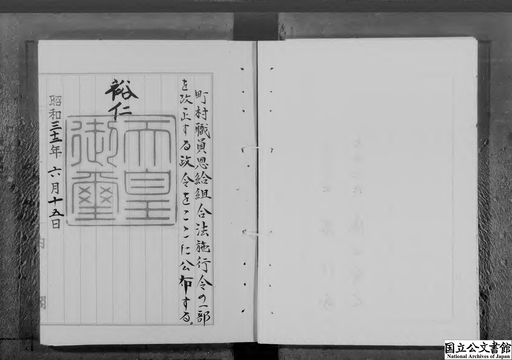 町村職員恩給組合法施行令の一部
を改正する政令をここに公布する。
裕仁
天皇
御璽
昭和三十二年六月十五日
国立公文書館
National Archives of Japan